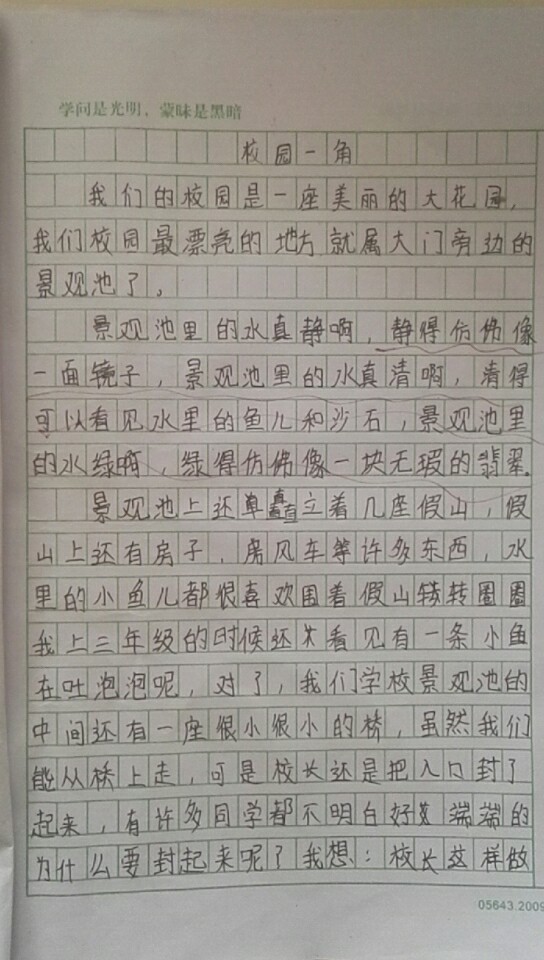 学问是光明，蒙昧是黑暗
校园一角
我们的校园是一座美丽的大花园，
我们校园最漂亮的地方就属大门旁边的
景观池了。
景观池里的水真静啊，静得仿佛像
一面镜子，景观池里的水真清啊，清得
可以看见水里的鱼儿和沙石，景观池里
的水绿啊，绿得仿佛像一块无瑕的翡翠。
景观池上还矗立着几座假山，假
山上还有房子，房风车等许多东西，水
里的小鱼儿都很喜欢围着假山转转圈圈
我上三年级的时候还看见有一条小鱼
在吐泡泡呢，对了，我们学校景观池的
中间还有一座很小很小的桥，虽然我们
能从桥上走，可是校长还是把入口封了
起来，有许多同学都不明白好端端的
为什么要封起来呢？我想：校长这样做
05643.2009